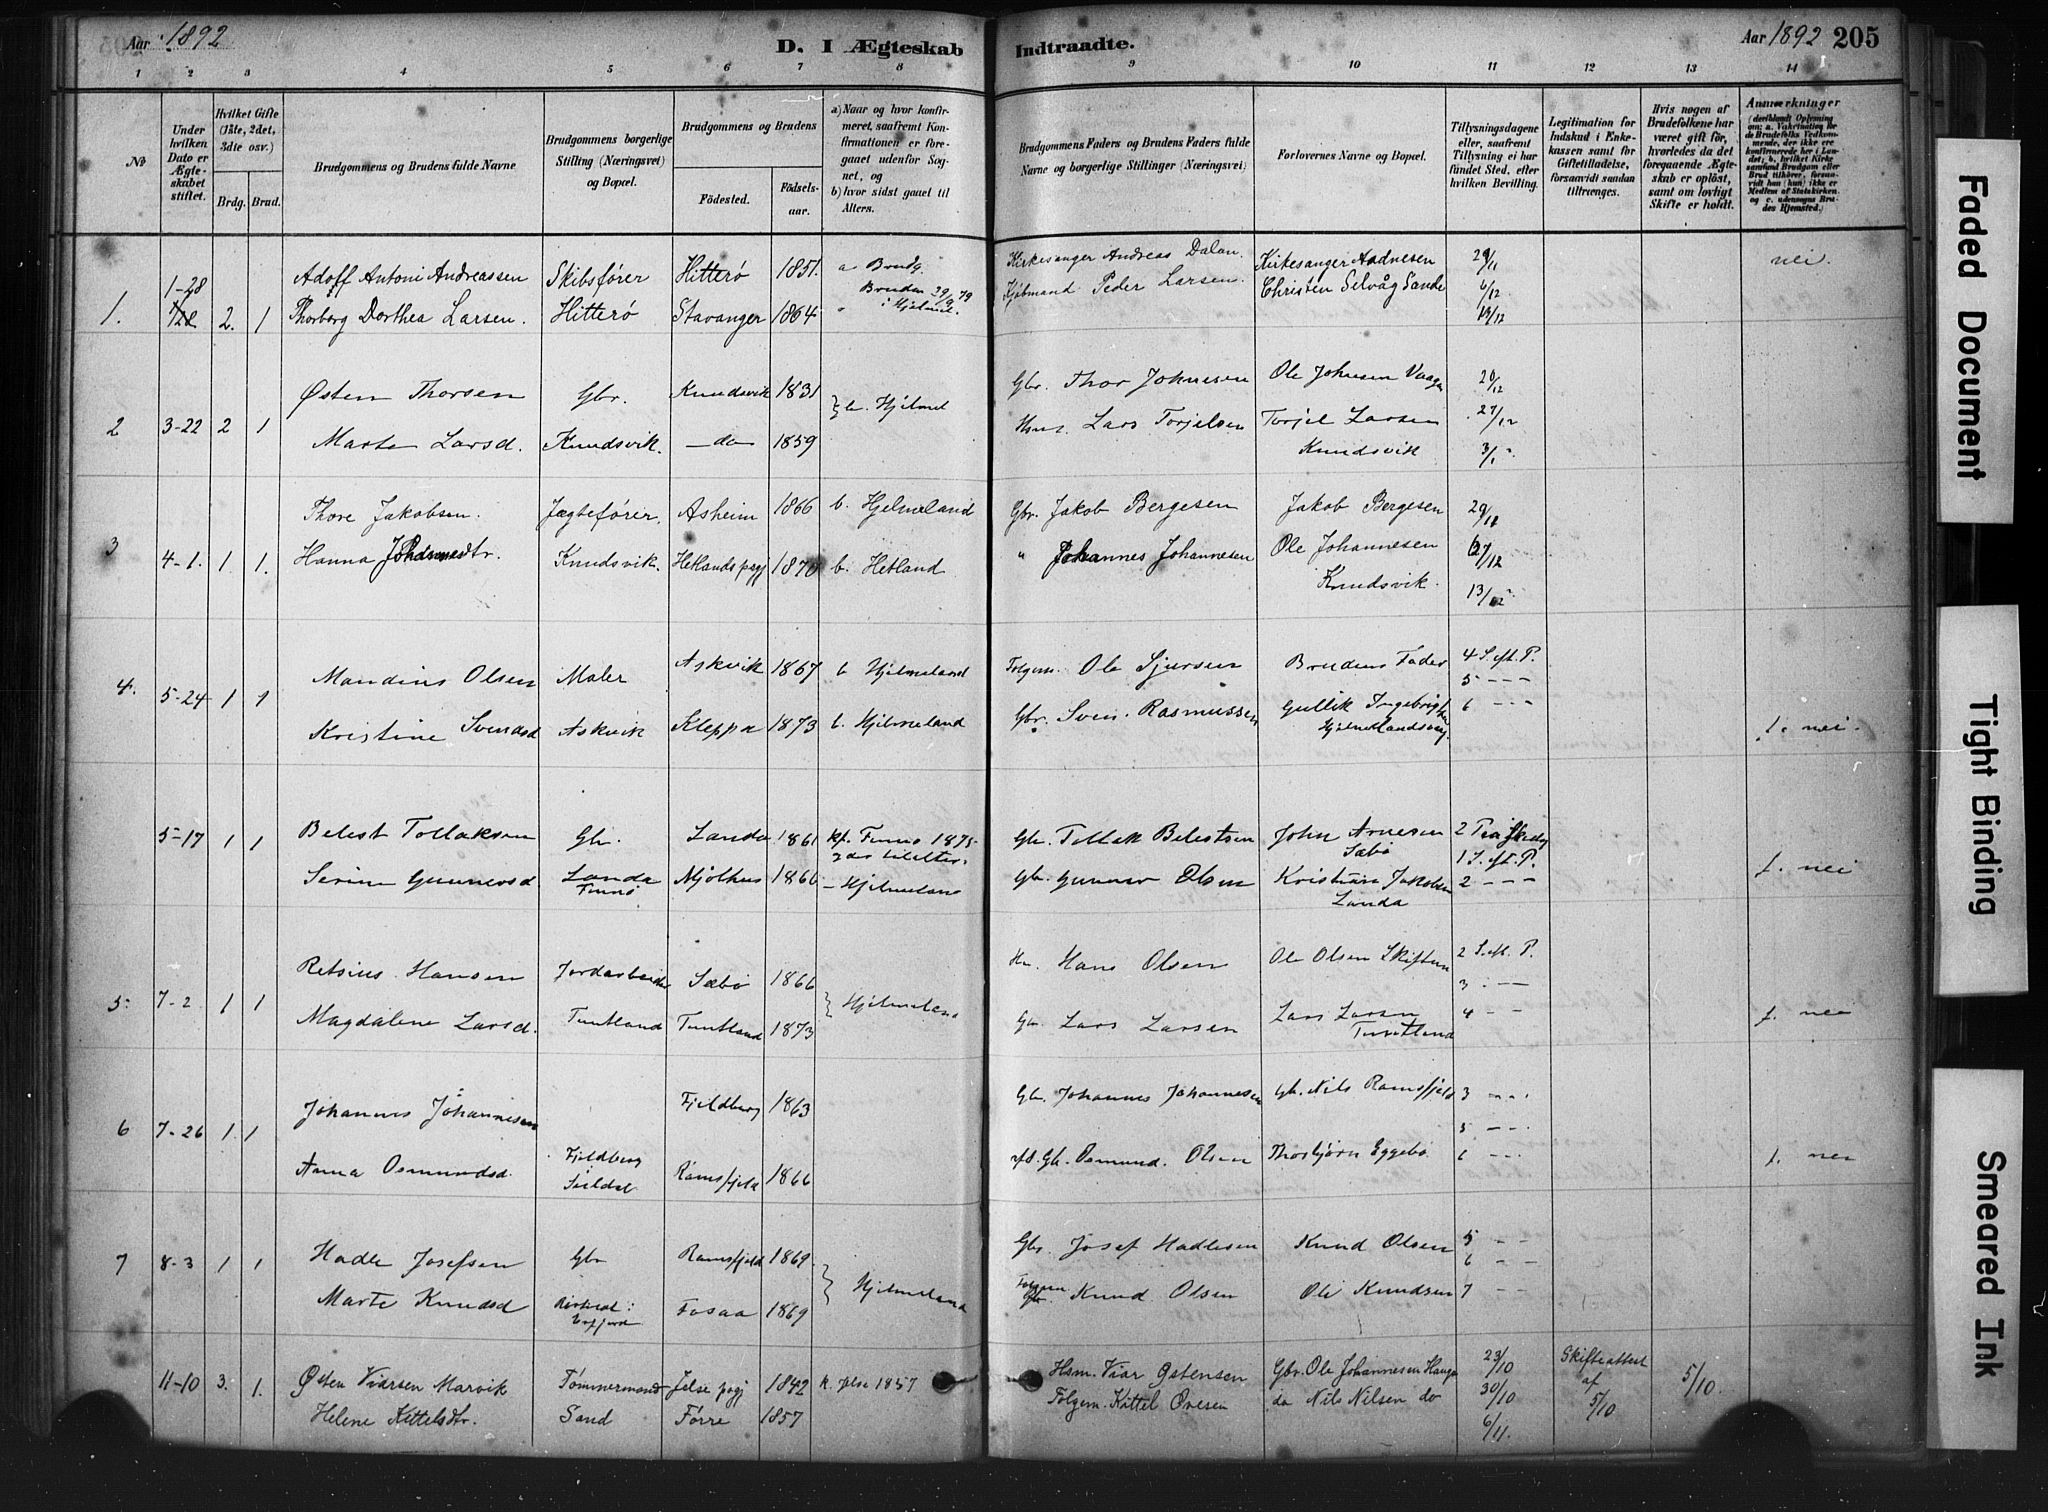 Aar 1892
D. I Ægteskab Indtraadte.
Aar 1892 205
1 2 3 4 5 6 7 8 9 10 11 12 13 14
No
Under hvilken Dato er Ægteskabet stiftet.
Hvilket Gifte (1ste, 2det, 3die osv.)
Brdg. Brud.
Brudgommens og Brudens fulde Navne
Brudgommens borgerlige Stilling (Næringsvei) og Bopæl.
Brudgommens og Brudens
Födested.
Födselsaar.
a) Naar og hvor konfirmeret, saafremt Konfirmationen er foregaaet udenfor Sognet, og
b) hvor sidst gaaet til Alters.
Brudgommens Faders og Brudens Faders fulde Navne og borgerlige Stillinger (Næringsvei)
Forlovernes Navne og Bopæl.
Tillysningsdagene eller, saafremt Tillysning ei har fundet Sted, efter hvilken Bevilling.
Legitimation for Indskud i Enkekassen samt for Giftetilladelse, forsaavidt saadan tiltrænges.
Hvis nogen af Brudefolkene har været gift för, hvorledes da det foregaaende Ægteskab er oplöst, samt om lovligt Skifte er holdt.
Anmærkninger (deriblandt Oplysning om: a. Vakcination for de Brudefolks Vedkommende, der ikke ere konfirmerede her i Landet; b. hvilket Kirkesamfund Brudgom eller Brud tilhörer, forsaavidt han (hun) ikke er Medlem af Statskirken, og c. udensogns Brudes Hjemsted.)
1. 1-28 2. 1 Adolf Antoni Andreassen Skibsfører Hitterø 1851. a Brudg. Kirkesanger Andreas Dalan. Kirkesanger Aadnesen 29/11 nei.
Thorberg Dorthea Larsen. Hitterø Stavanger 1864 Bruden 29/9 79 i Hjelmel. Kjøbmand Peder Larsen. Christen Selvåg Sande 6/12
13/12
2 3-22 2 1 Østen Thorsen Gbr. Knudsvik 1831 b. Hjelmel Gbr. Thor Johnesen Ole Johnsen Vaage 20/12
Marte Larsd. Knudsvik. — do 1859 Hsm. Lars Torjelsen Torjel Larsen 27/12
Knudsvik 3/1
3 4-1. 1 1. Thore Jakobsen. Jægtefører. Asheim 1866 b. Hjelmeland Gbr. Jakob Bergesen Jakob Bergesen 29/11
Hanna Knudsvik. Hetlands pgj 1870 b. Hetland " Johannes Johannesen Ole Johannesen
Knudsvik. 13/12
4. 5-24 1 1 Mandius Olsen Maler Askvik 1867 b Hjelmeland Folgem. Ole Sjursen Brudens Fader 4 S. eft. P.
5 - - -
Kristine Svendsd Askvik Kleppa 1873 b. Hjelmeland Gbr. Sven. Rasmussen Gullik Ingebrigtsen 6 - - -
Hjelmelandsvag. f. nei.
5-17 1 1 Belest Tollaksen Gbr. Landa 1861 kf. Finnø 1875 Gbr. Tollak Belestsen John Arnesen 2
Sæbø 1 S. eft. P.
Serine Gunnersd. Landa Finnø Mjølhus 1866 — Hjelmeland Gbr. Gunnar Olsen Kristian Jakobsen 2 - - -
Landa f. nei
5 7-2 1 1 Retsius Hansen Jordarbeider Sæbø 1866 Hjelmeland Hm. Hans Olsen Ole Olsen Skiftun 2 S. eft. P.
3 - —
Magdalene Larsd. Tuntland Tuntland 1873 Gbr Lars Larsen Lars Larsen 4 - -
Tuntland f. nei
6 7-26 1. 1 Johannes Johannesen Fjeldberg 1863 Gbr. Johannes Johannesen Gbr. Nils Ramsfjeld 3 - - -
5 - - -
Anna Osmundsd. Fjeldberg Suldal Ramsfjeld 1866 afd. Gbr. Osmund. Olsen Thorbjørn Eggebø 6 - - - f. nei
7 8-3 1 1 Hadle Josefsen Gbr Ramsfjeld 1869 Hjelmeland Gbr. Josef Hadlesen Knud Olsen 5 - -
6 - -
Marte Knudsd Erfjord Fosaa 1869 Folgem Gbr. Knud Olsen Ole Knudsen 7 - -
11-10 3. 1. Østen Viarsen Marvik Tømmermand Jelse pgj 1842 k. Jelse 1857 Hsm. Viar Østensen Gbr. Ole Johannesen Hauge 23/10 Skifteattest 5/10.
Helene Kittelsdtr. Sand Førre 1857 Folgem. Kittel Ovesen do Nils Nilsen do 30/10 af 5/10
6/11.
Faded Document
Tight Binding
Smeared Ink